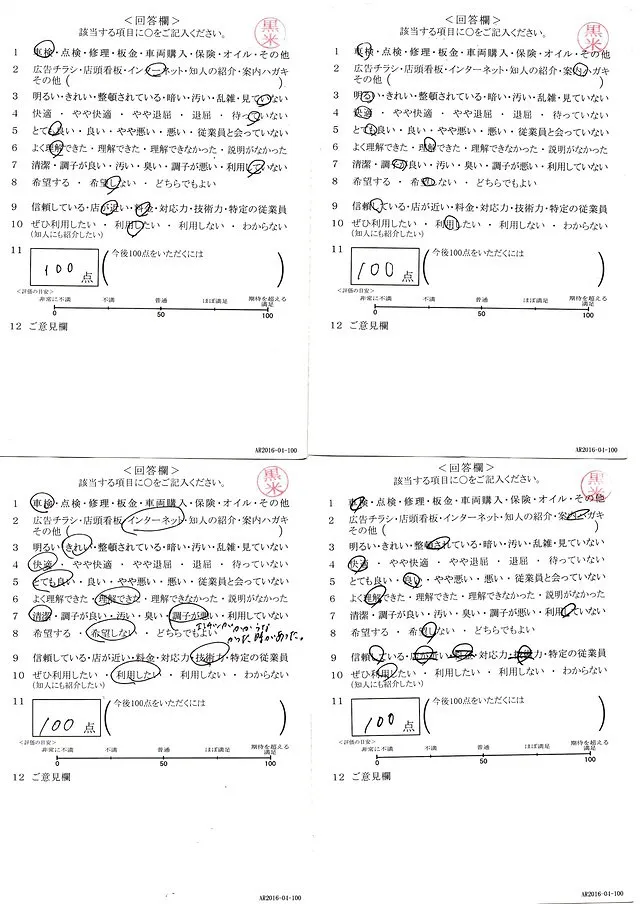 ＜回答欄＞
該当する項目に○をご記入ください。
黒米
1 車検・点検・修理・板金・車両購入・保険・オイル・その他
2 広告チラシ・店頭看板・インターネット・知人の紹介・案内ハガキ
その他（ ）
3 明るい・きれい・整頓されている・暗い・汚い・乱雑・見ていない
4 快適 ・ やや快適 ・ やや退屈 ・ 退屈 ・ 待っていない
5 とても良い・良い・やや悪い・悪い・従業員と会っていない
6 よく理解できた・理解できた・理解できなかった・説明がなかった
7 清潔・調子が良い・汚い・臭い・調子が悪い・利用していない
8 希望する ・ 希望しない ・ どちらでもよい
9 信頼している・店が近い・料金・対応力・技術力・特定の従業員
10 ぜひ利用したい ・ 利用したい ・ 利用しない ・ わからない
(知人にも紹介したい)
11 100 点 （今後100点をいただくには ）
＜評価の目安＞
非常に不満 不満 普通 ほぼ満足 期待を超える満足
0 50 100
12 ご意見欄
AR2016-01-100
＜回答欄＞
該当する項目に○をご記入ください。
黒米
1 車検・点検・修理・板金・車両購入・保険・オイル・その他
2 広告チラシ・店頭看板・インターネット・知人の紹介・案内ハガキ
その他（ ）
3 明るい・きれい・整頓されている・暗い・汚い・乱雑・見ていない
4 快適 ・ やや快適 ・ やや退屈 ・ 退屈 ・ 待っていない
5 とても良い・良い・やや悪い・悪い・従業員と会っていない
6 よく理解できた・理解できた・理解できなかった・説明がなかった
7 清潔・調子が良い・汚い・臭い・調子が悪い・利用していない
8 希望する ・ 希望しない ・ どちらでもよい
9 信頼している・店が近い・料金・対応力・技術力・特定の従業員
10 ぜひ利用したい ・ 利用したい ・ 利用しない ・ わからない
(知人にも紹介したい)
11 100 点 （今後100点をいただくには ）
＜評価の目安＞
非常に不満 不満 普通 ほぼ満足 期待を超える満足
0 50 100
12 ご意見欄
AR2016-01-100
＜回答欄＞
該当する項目に○をご記入ください。
黒米
1 車検・点検・修理・板金・車両購入・保険・オイル・その他
2 広告チラシ・店頭看板・インターネット・知人の紹介・案内ハガキ
その他（ ）
3 明るい・きれい・整頓されている・暗い・汚い・乱雑・見ていない
4 快適 ・ やや快適 ・ やや退屈 ・ 退屈 ・ 待っていない
5 とても良い・良い・やや悪い・悪い・従業員と会っていない
6 よく理解できた・理解できた・理解できなかった・説明がなかった
7 清潔・調子が良い・汚い・臭い・調子が悪い・利用していない
8 希望する ・ 希望しない ・ どちらでもよい
9 信頼している・店が近い・料金・対応力・技術力・特定の従業員
10 ぜひ利用したい ・ 利用したい ・ 利用しない ・ わからない
(知人にも紹介したい)
11 100 点 （今後100点をいただくには ）
＜評価の目安＞
非常に不満 不満 普通 ほぼ満足 期待を超える満足
0 50 100
12 ご意見欄
AR2016-01-100
＜回答欄＞
該当する項目に○をご記入ください。
黒米
1 車検・点検・修理・板金・車両購入・保険・オイル・その他
2 広告チラシ・店頭看板・インターネット・知人の紹介・案内ハガキ
その他（ ）
3 明るい・きれい・整頓されている・暗い・汚い・乱雑・見ていない
4 快適 ・ やや快適 ・ やや退屈 ・ 退屈 ・ 待っていない
5 とても良い・良い・やや悪い・悪い・従業員と会っていない
6 よく理解できた・理解できた・理解できなかった・説明がなかった
7 清潔・調子が良い・汚い・臭い・調子が悪い・利用していない
8 希望する ・ 希望しない ・ どちらでもよい
9 信頼している・店が近い・料金・対応力・技術力・特定の従業員
10 ぜひ利用したい ・ 利用したい ・ 利用しない ・ わからない
(知人にも紹介したい)
11 100 点 （今後100点をいただくには ）
＜評価の目安＞
非常に不満 不満 普通 ほぼ満足 期待を超える満足
0 50 100
12 ご意見欄
AR2016-01-100